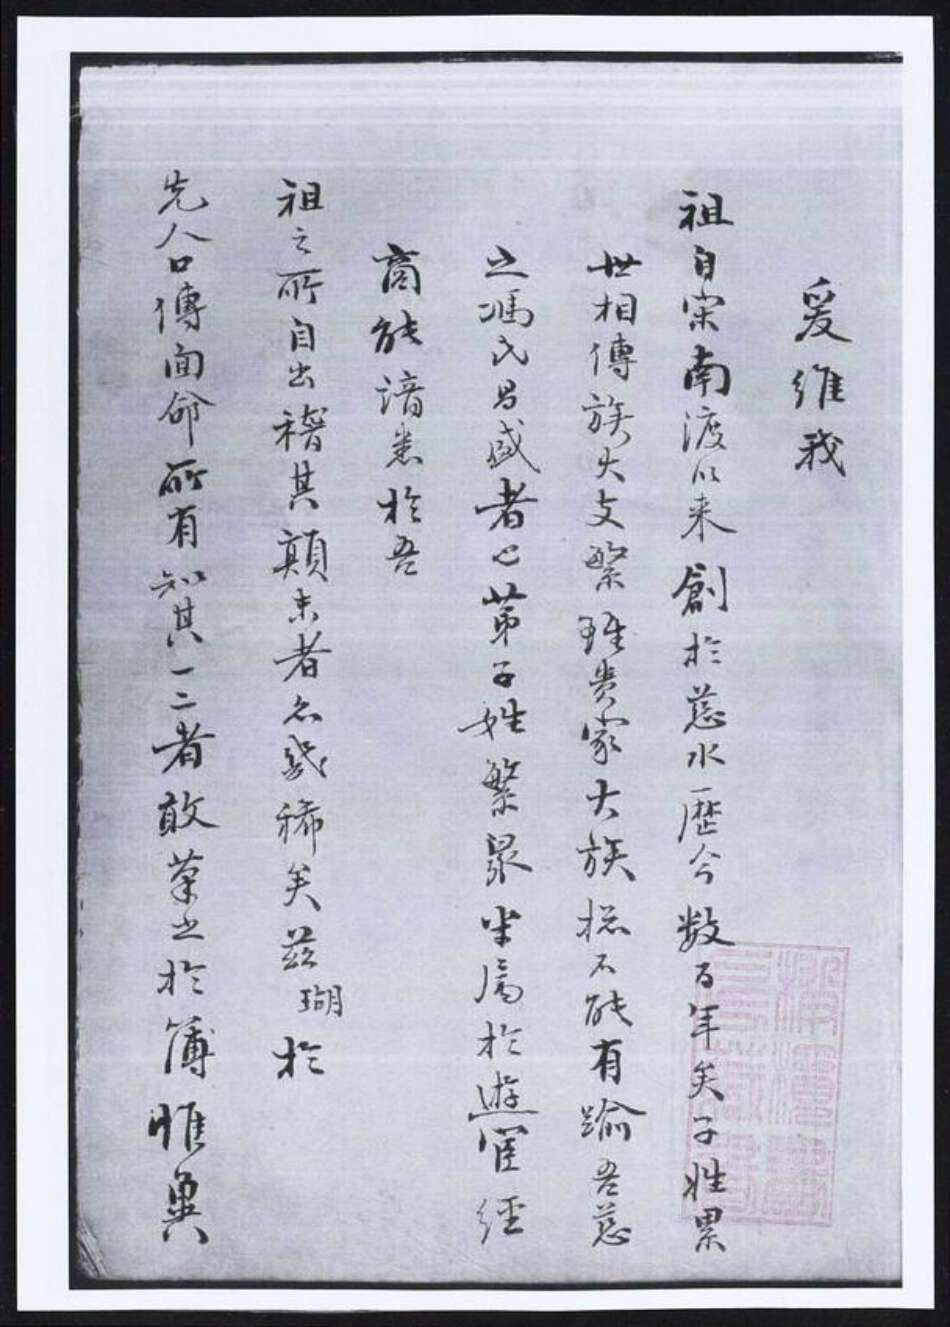 爰維我
祖自宋南渡以來創於慈水歷今数百年矣子姓累
世相傳族大支繁雖贵家大族概不能有踰吾慈
之馮氏昌盛者也第子姓繁衆半属於遊宦經
商能諳悉於吾
祖之所自出稽其顛末者亦幾稀矣兹瑚於
先人口傳面命所有知其一二者敢筆之於簿惟異